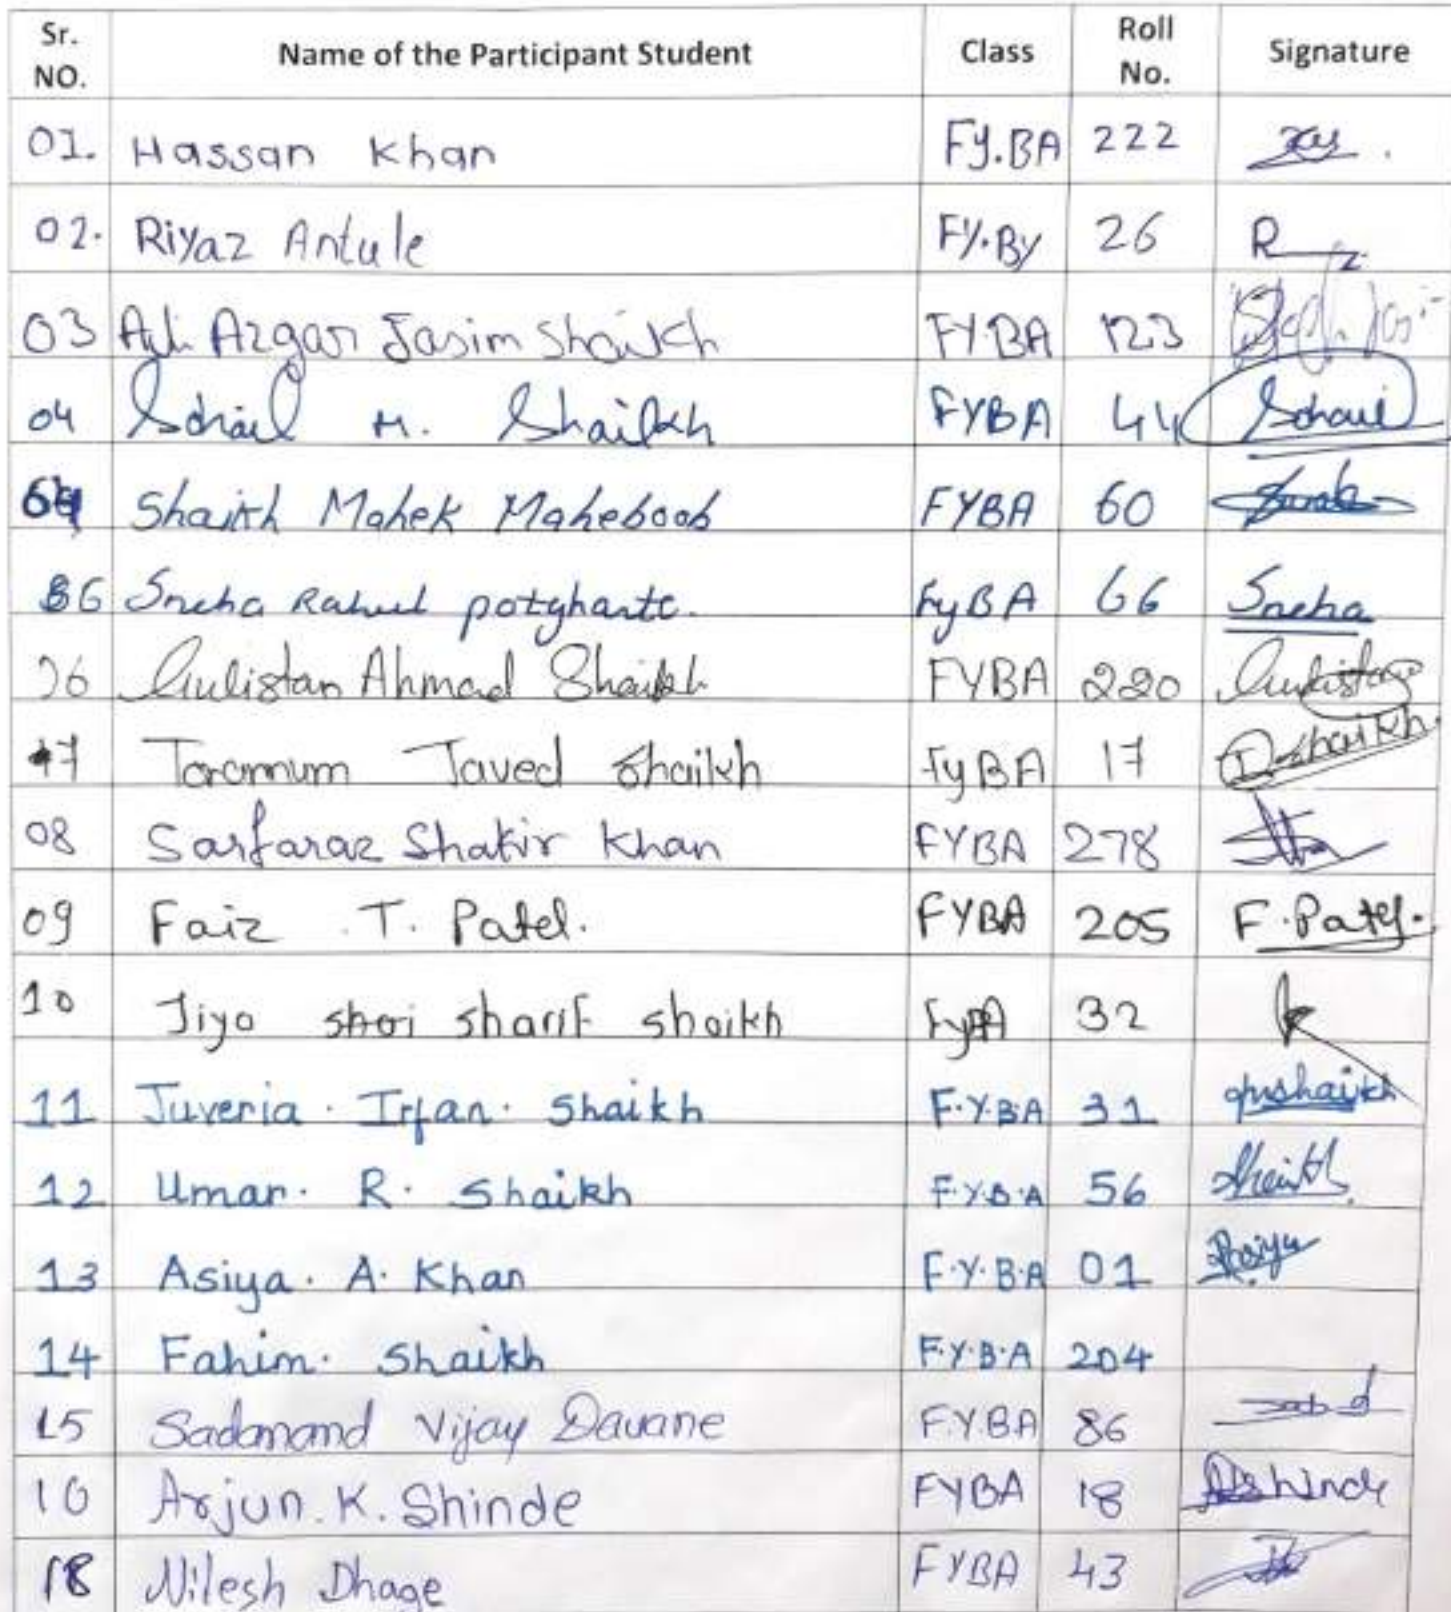 Sr. NO. Name of the Participant Student Class Roll No. Signature
01. Hassan Khan FY.BA 222
02. Riyaz Antule FY.By 26 R
03 Azgar Jasim Shaikh FY.BA 123
04 Sohail M. Shaikh FYBA 44 Sohail
Shaikh Mahek Maheboob FYBA 60
6 Sneha Rahul potghante. FyBA 66 Sneha
06 Gulistan Ahmad Shaikh FYBA 220 Gulistan
7 Taramum Javed Shaikh FyBA 17 Shaikh.
08 Sarfaraz Shakir Khan FYBA 278
09 Faiz T. Patel. FYBA 205 F.Patel.
10 Jiya sharif shaikh FyBA 32
11 Juveria. Irfan. Shaikh F.Y.B.A 31 shaikh
12 Umar. R. Shaikh F.Y.B.A 56 Shaikh
13 Asiya. A. Khan F.Y.B.A 01 Asiya
14 Fahim. Shaikh F.Y.B.A 204
15 Sadanand Vijay Davane F.Y.BA 86
16 Arjun.K.Shinde FYBA 18 Shinde
18 Nilesh Dhage FYBA 43